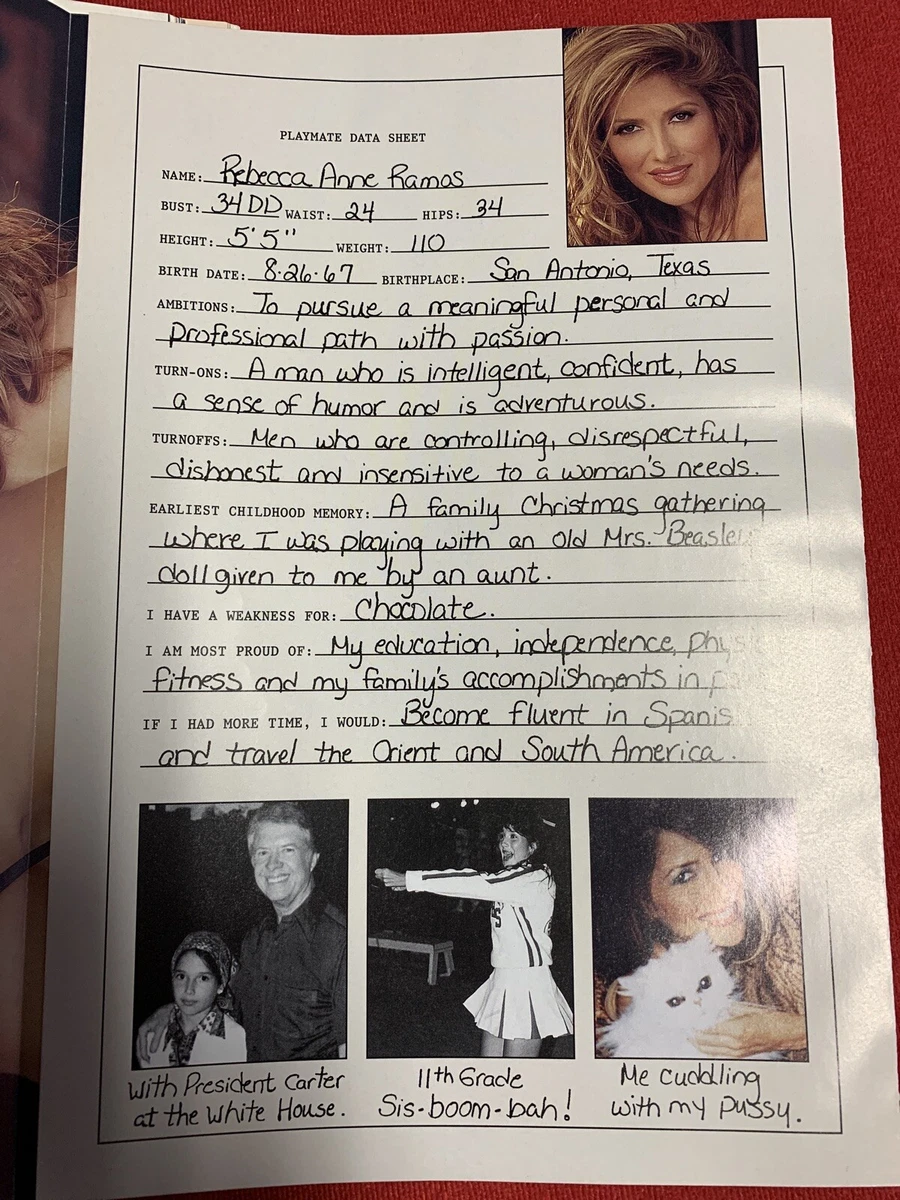 PLAYMATE DATA SHEET
NAME: Rebecca Anne Ramos
BUST: 34DD WAIST: 24 HIPS: 34
HEIGHT: 5'5" WEIGHT: 110
BIRTH DATE: 8·26·67 BIRTHPLACE: San Antonio, Texas
AMBITIONS: To pursue a meaningful personal and
professional path with passion.
TURN-ONS: A man who is intelligent, confident, has
a sense of humor and is adventurous.
TURNOFFS: Men who are controlling, disrespectful,
dishonest and insensitive to a woman's needs.
EARLIEST CHILDHOOD MEMORY: A family Christmas gathering
where I was playing with an old Mrs. Beasley
doll given to me by an aunt.
I HAVE A WEAKNESS FOR: Chocolate.
I AM MOST PROUD OF: My education, independence,
fitness and my family's accomplishments in
IF I HAD MORE TIME, I WOULD: Become fluent in Spanis
and travel the Orient and South America.
With President Carter
at the White House.
11th Grade
Sis-boom-bah!
Me cuddling
with my pussy.